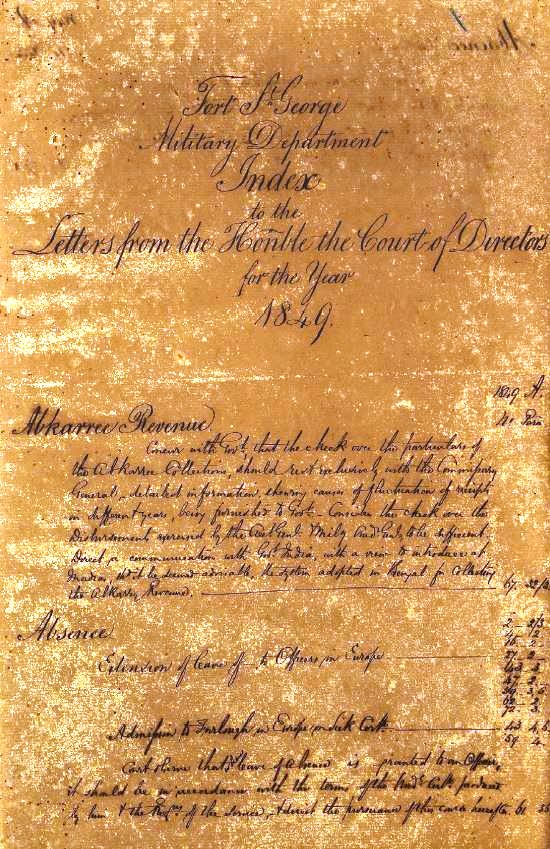 Fort St. George
Military Department
Index
to the
Letters from the Honble the Court of Directors
for the Year
1849.
1849 A.
No Para
Abkarree Revenue
Concur with Govt. that the check over the particulars of
the Abkarree Collections, should rest exclusively with the Commissary
General, detailed information, shewing causes of fluctuation of receipts
in different years, being furnished to Govt. Consider the check over the
Disbursements exercised by the Acct. Genl. & Mily Aud. Genl. to be sufficient.
Direct a communication with Govt. India, with a view to introduce at
Madras, shd. it be deemed advisable, the system adopted in Bengal for Collecting
the Abkarry Revenue. 67.
Absence
Extension of leave of - to Officers in Europe
Admission to Furlough in Europe on Sick Cert.
Court observe that if leave of absence is granted to an Officer,
it should be in accordance with the terms of the Certt. produced
by him & the of the Service, & direct the pursuance of this course 61